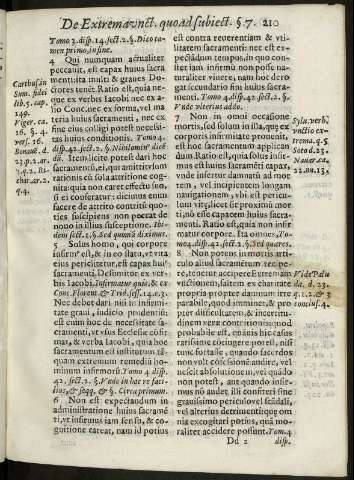 De Extremavnct. quoad subiect. §.7. 210
Tomo 3. disp. 44. sect. 2. §. Dico tamen
primo, in fine.
4 Qui numquam actualiter
peccauit, est capax huius sacramenti:
ita multi & graues Doctores
tenēt. Ratio est, quia neque
ex verbis Iacobi nec ex ratio
Conc. nec ex forma, vel materia
huius sacramenti, nec ex
fine eius colligi potest necessitas
huius conditionis. Tomo 4.
disp. 42. sect. 2. §. Nihilominus dicēdū.
Item licite potest dari hoc
sacramentū ei, qui amittit vsum
rationis eū sola attritione cognita:
quia non caret effectu suo,
si is conferatur: dicimus enim
facere de attrito contritū quoties
suscipiens non peccat de
nouo in illius susceptione. Ibidem
sect. 1. §. Sed quanuis dixerunt.
5 Solus homo, qui corpore
infirmꝰ est, & in eo statu, vt vita
eius periclitetur, est capax huiꝰ
sacramenti. Desumitur ex verbis
Iacobi. Infirmatur quis: & ex
Conc. Florent. & Trid. sess. 14. c. 3.
Nec debet dari nisi in infirmitate
graui, iudicio prudentis:
est enim hoc de necessitate sacramenti,
vt vsus Ecclesiæ confirmat,
& verba Iacobi, quia hoc
sacramentum est institutum tāquam
extremum remediū hominum
infirmorū. Tomo 4 disp.
42. sect. 2. §. Vnde in hac re facilius,
& seqq. & §. Circa primum.
6 Non est expectandum in
administratione huius sacramēti,
vt infirmus iam sensu, & cogitatione
careat, nam id potius
est contra reuerentiam & vtilitatem
sacramenti: nec est expectādum
tempus, in quo constet
infirmū non posse naturaliter
viuere, nam hoc derogat
secundario fini huius sacramenti.
Tomo 4. disp. 42. sect. 2. §.
Vnde viterius addo.
7 Non in omni occasione
mortis, sed solum in illa, quæ ex
corporis infirmitate prouenit,
est hoc sacramentum applicandum.
Ratio est, quia solus infirmus
est huius sacramēti capax,
vnde condemnatus ad mortem,
vel incipientem longam
nauigationem, vbi est periculum
vitę, licet sit proximꝰ morti,
nō esse capacem huius sacramenti.
Ratio est, quia non infirmatur
corpore. Ita omnes, Tomo
4. disp. 42. sect. 2. §. Sed quæres.
8 Non potens in mortis articulo
aliud sacramētum recipere,
tenetur accipere Extremam
vnctionem, saltem ex charitate
propria propter damnum irreparabile,
quod imminet, & propter
difficultatem, & incertitudinem
verę contritionis: quod
probabile est. quāuis hic casus
rarissime cōtingere potest, nisi
nunc fortasse, quando sacerdos
non vult cōfessionē audire, vel
nescit absolutionem, vel quādo
non potest, aut quando infirmus
nō audet, illi confiteri sine
grauissimo periculo, vel scādali,
vel alterius detrimenti: quę omnia
excogitari potius, quā moraliter
accidere possunt. Tomo. 4
Dd 2 disp.
Carthus. in
Sum. fidei
lib. 5. cap.
149.
16. §. 4.
verb. 16.
23. p. 2. ar.
2. q. 2.
char. ar. 2.
q. 4.
Sylu. verb.
vnctio extrema.
q. 5.
Soto d. 23.
Nauar. ca.
22. nu. 13.
Vide Paluda.
d. 23.
q. 1. 2. & 3
conclus. 4.